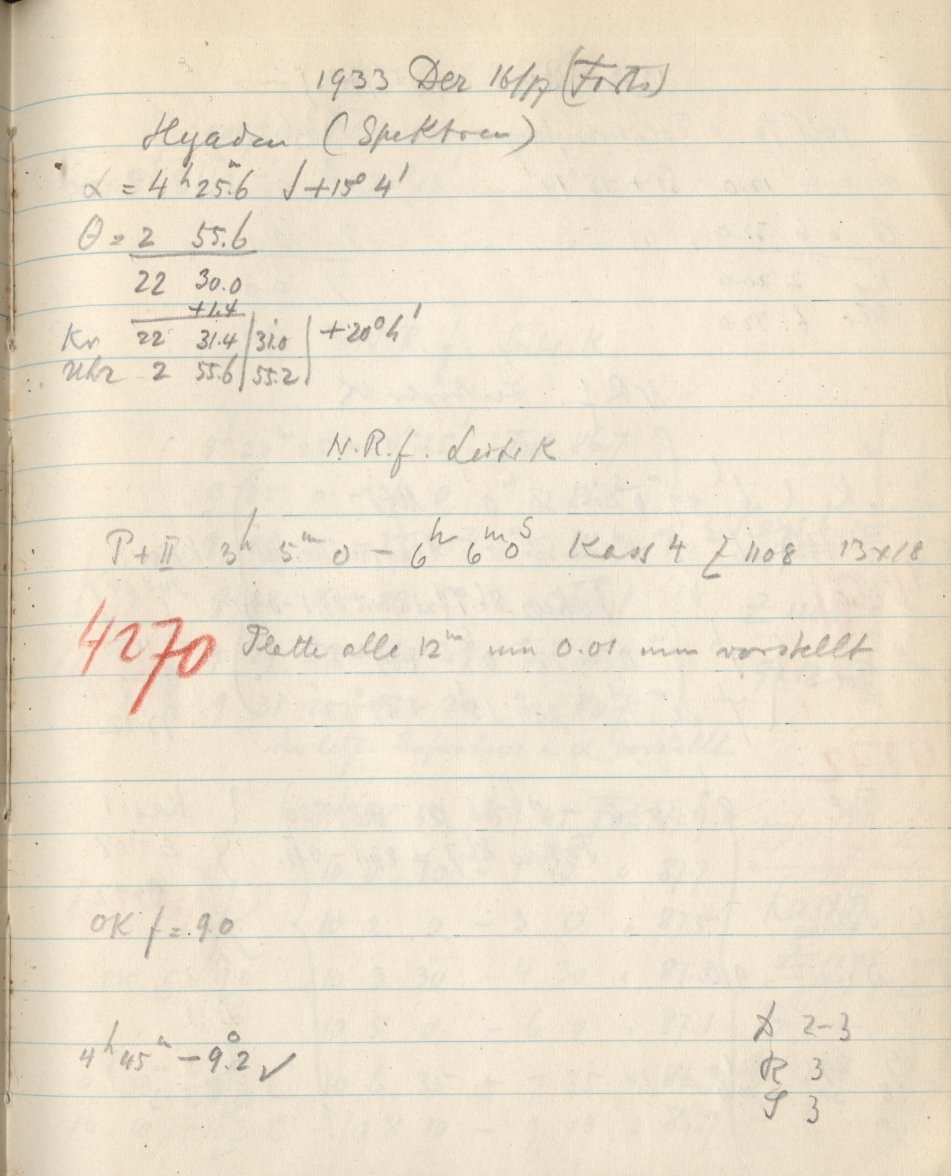 1933 Dez 16/17 (Forts)
Hyaden (Spektren)
α = 4ʰ 25.ᵐ6 δ +15° 4'
θ = 2 55.6
22 30.0
+1.4
Kr 22 31.4 | 31.0 | +20° 4'
Uhr 2 55.6 | 55.2 |
N.R.f. Leitrk
P+II 3ʰ 5ᵐ 0 – 6ʰ 6ᵐ 0ˢ Kass 4 Z 1108 13×18
4270 Platte alle 12ᵐ um 0.01 mm verstellt
OK f = 9.0
4ʰ 45ᵐ – 9.°2 ✓
2-3
R 3
S 3